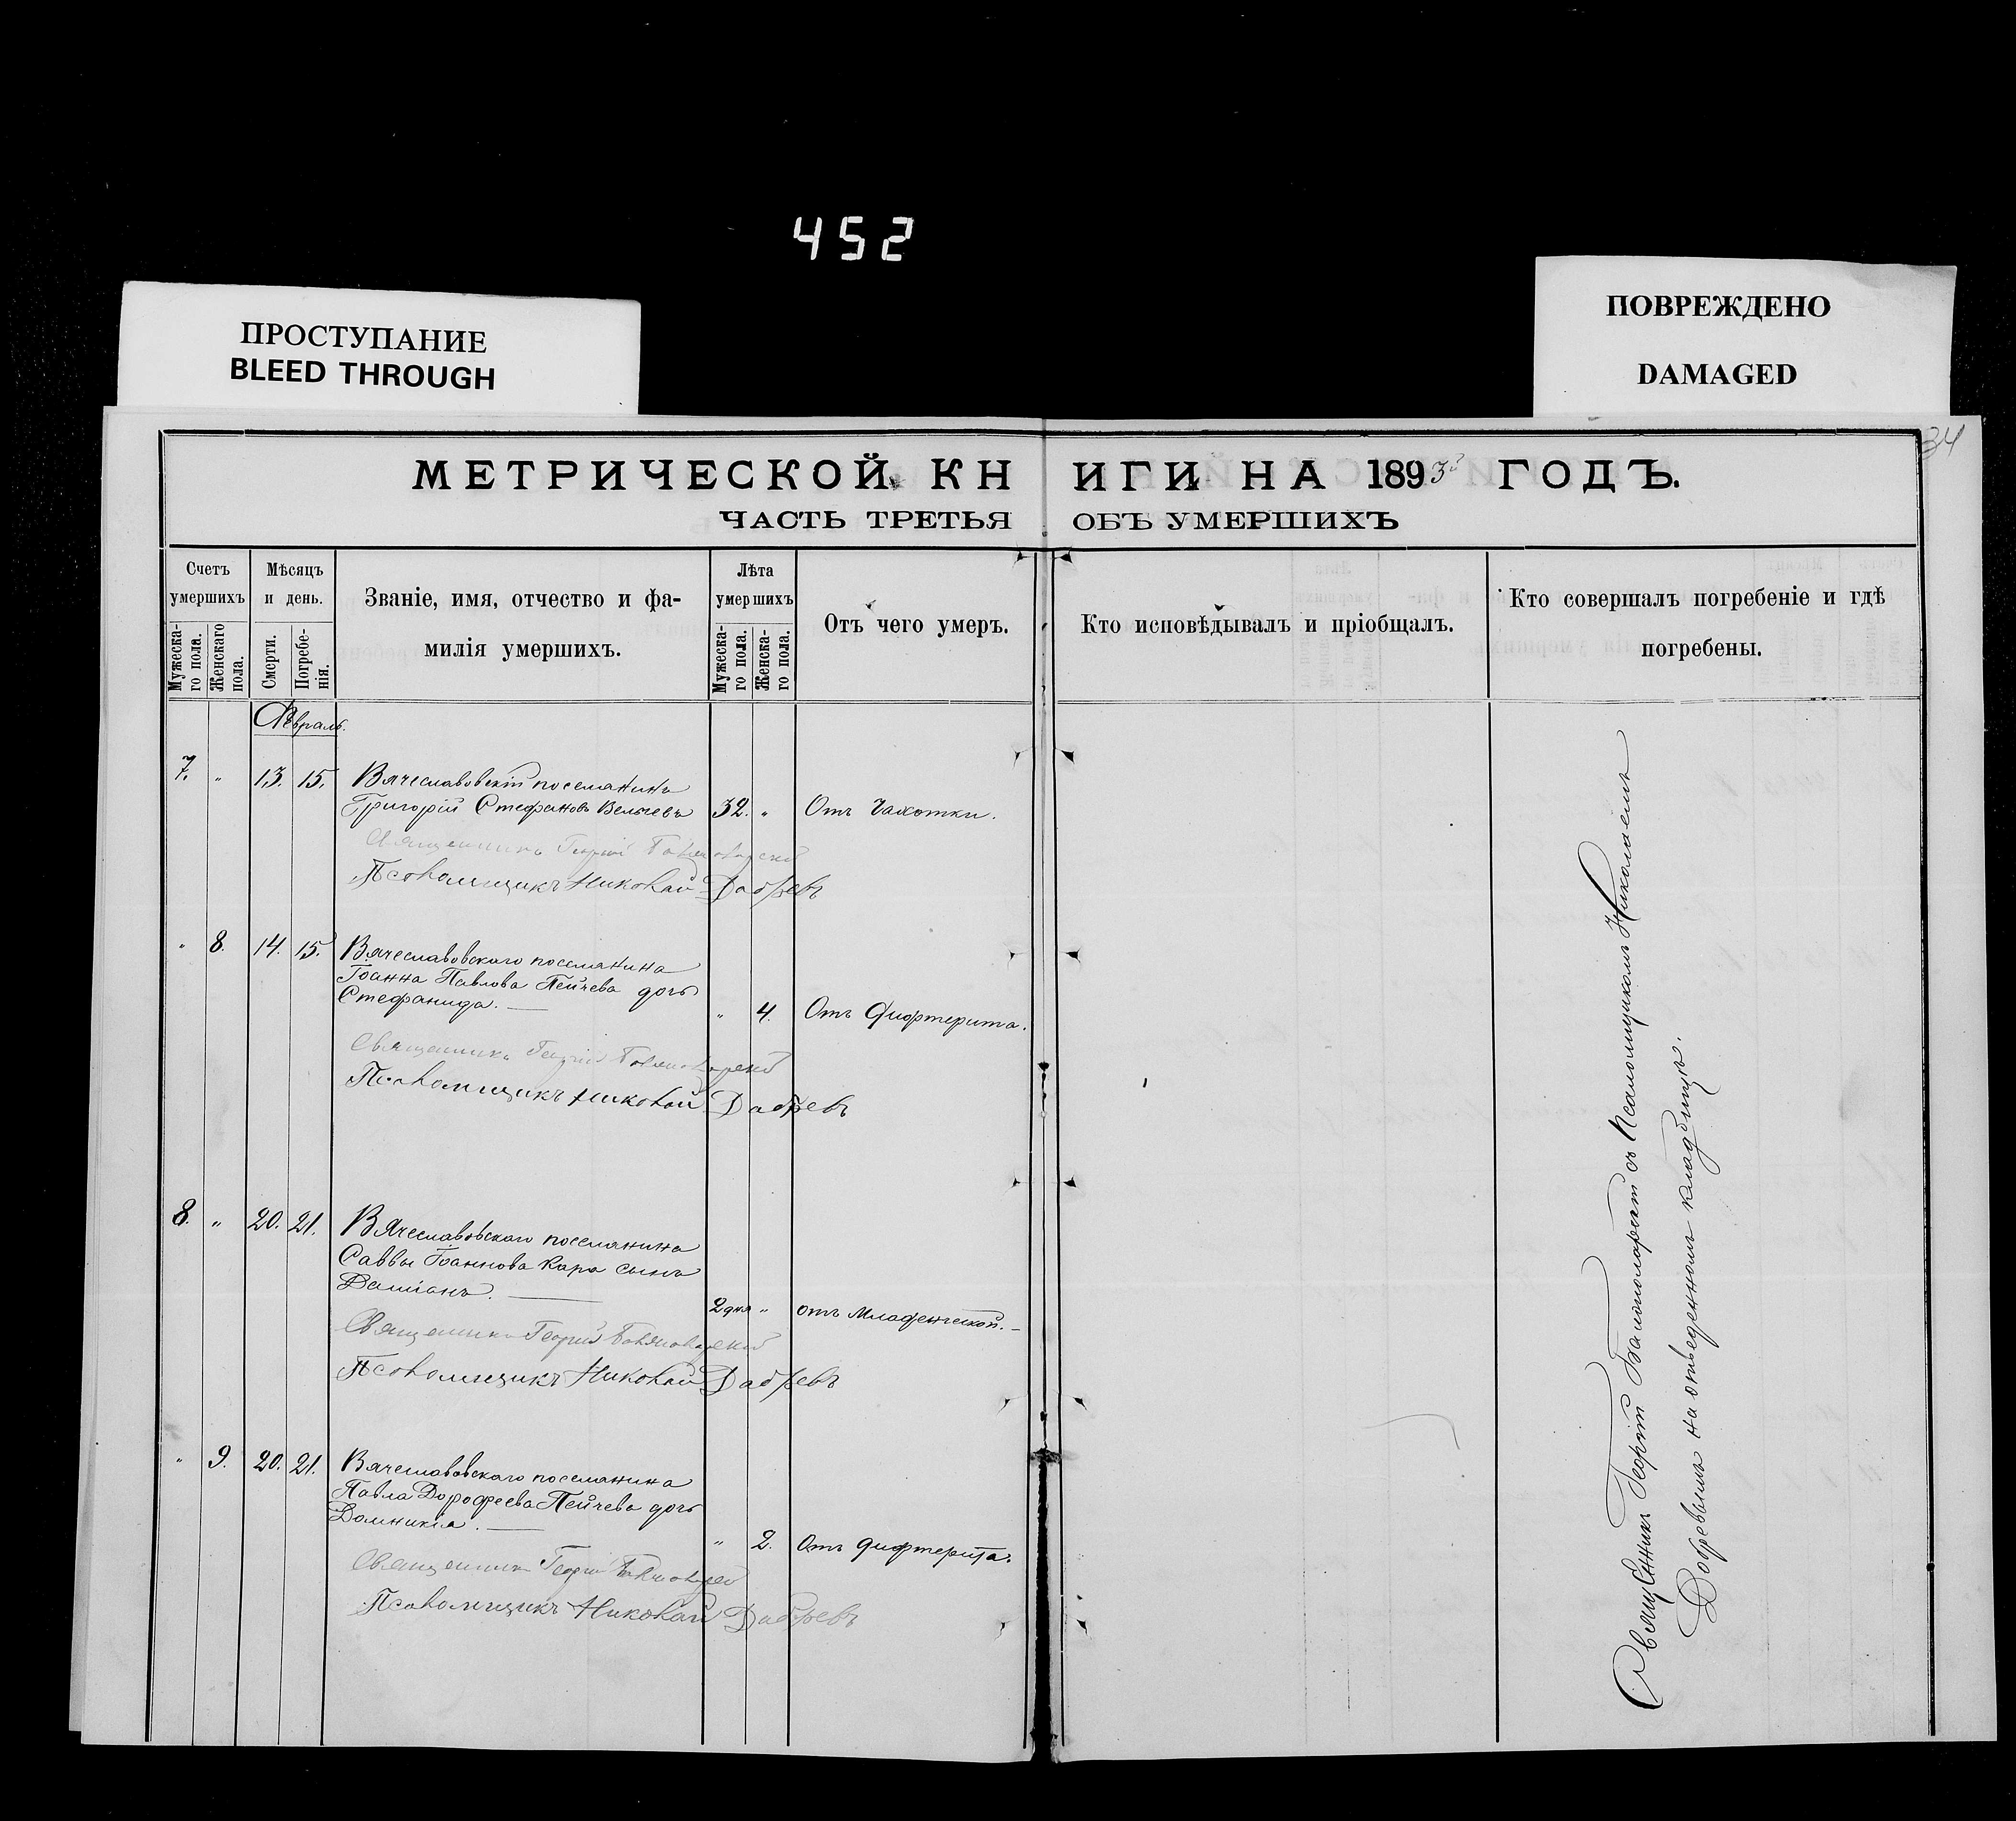 452
ПРОСТУПАНИЕ
BLEED THROUGH
ПОВРЕЖДЕНО
DAMAGED
34
МЕТРИЧЕСКОЙ КНИГИ НА 1893й ГОДЪ.
ЧАСТЬ ТРЕТЬЯ ОБЪ УМЕРШИХЪ
Счетъ умершихъ
Мужеска-го пола.
Женскаго пола.
Мѣсяцъ и день.
Смерти.
Погребе-нія.
Званіе, имя, отчество и фа-
милія умершихъ.
Лѣта умершихъ
Мужеска-го пола.
Женска-го пола.
Отъ чего умеръ.
Кто исповѣдывалъ и пріобщалъ.
Кто совершалъ погребеніе и гдѣ
погребены.
Февраль.
7. " 13. 15. Вячеславовскій поселянинъ
Григорій Стефановъ Велчевъ 32. " Отъ Чахотки.
Священникъ Георгій
Псаломщикъ Николай Добревъ
" 8. 14. 15. Вячеславовскаго поселянина
Іоанна Павлова Пейчева дочь
Стефанида. — " 4. Отъ Дифтерита.
Священникъ Георгій
Псаломщикъ Николай Добревъ
8. " 20. 21. Вячеславовскаго поселянина
Саввы Іоаннова Кара сынъ
Даміанъ. — 2 дня " отъ Младенческой. —
Священникъ Георгій
Псаломщикъ Николай Добревъ
" 9. 20. 21. Вячеславовскаго поселянина
Павла Дорофеева Пейчева дочь
Домникія. — " 2. Отъ дифтерита.
Священникъ Георгій
Псаломщикъ Николай Добревъ
Священникъ Георгій съ Псаломщикомъ Николаемъ
Добревымъ на отведенномъ кладбищѣ.